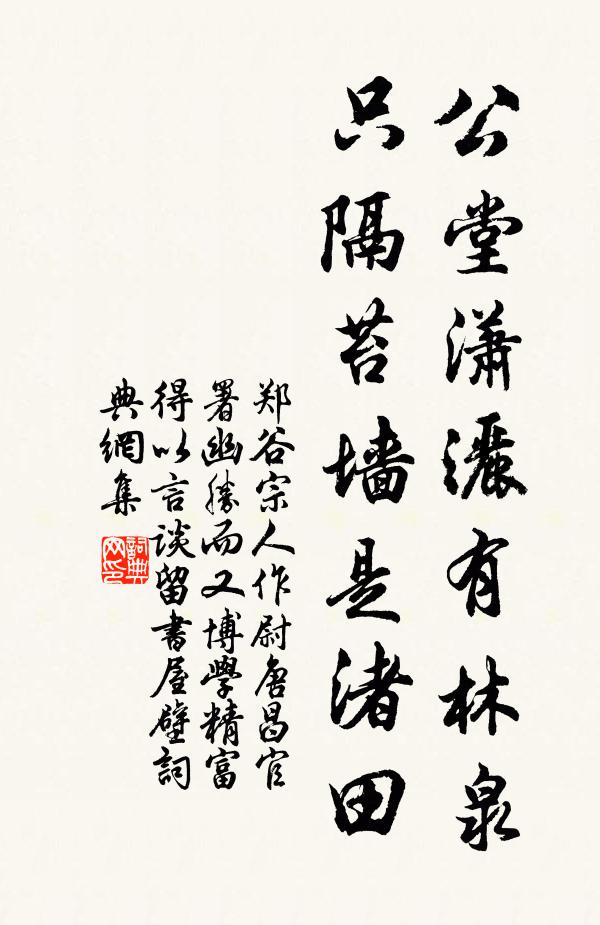 公堂瀟灑有林泉
只隔苔墙是渚田
郑谷宗人作尉唐昌官
署幽勝而又博學精富
得以言谈留書屋壁詞
典網集
詞典
网印